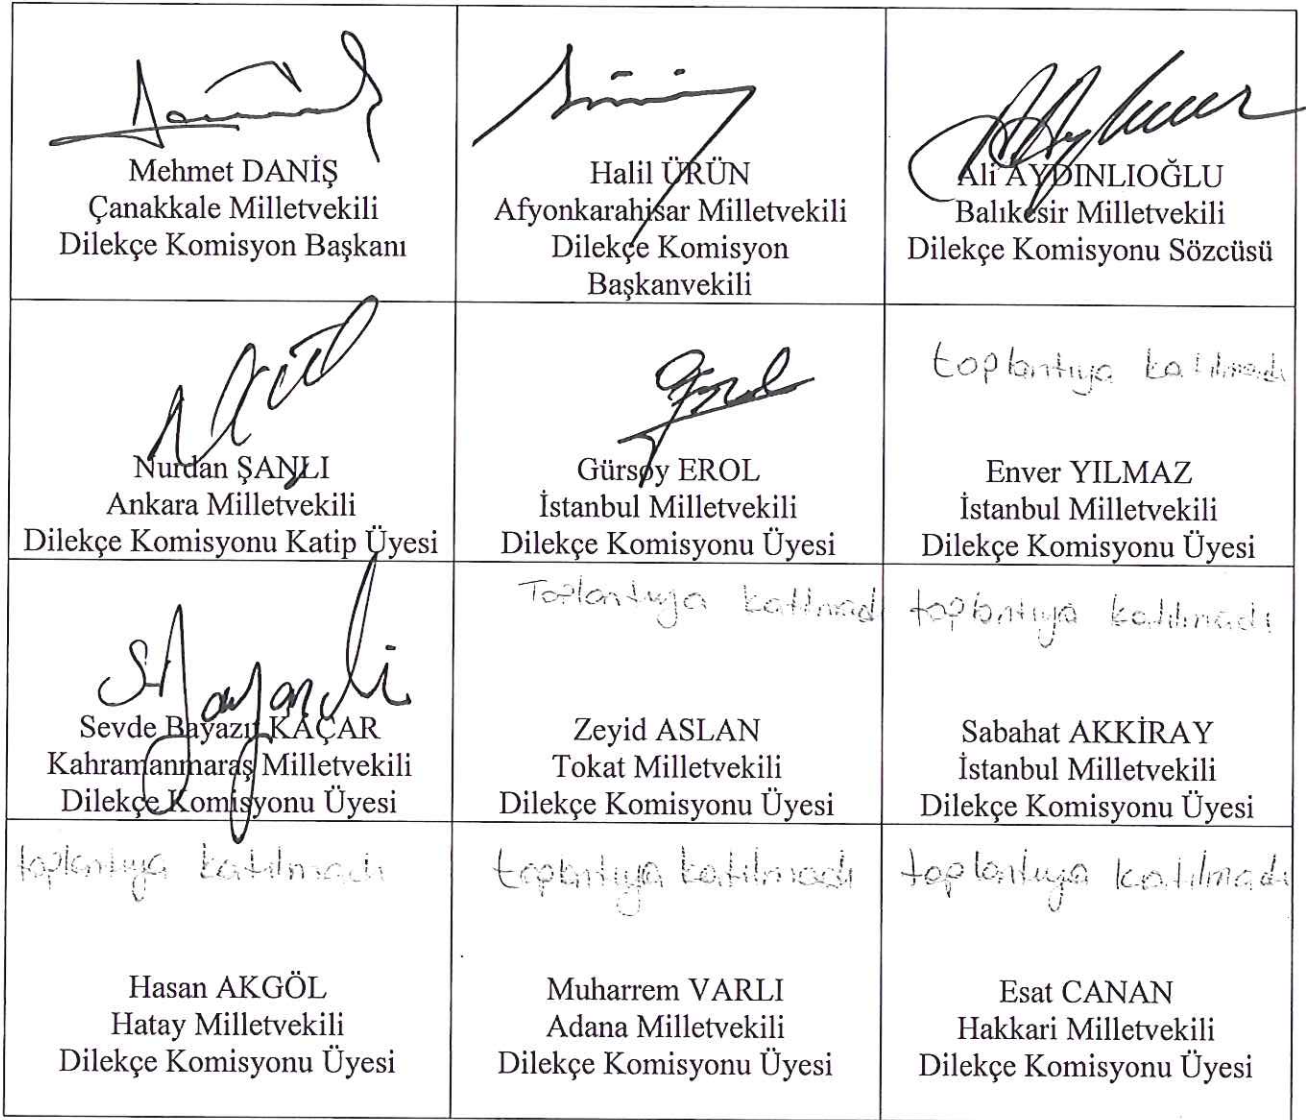 Mehmet DANİŞ
Çanakkale Milletvekili
Dilekçe Komisyon Başkanı
Halil ÜRÜN
Afyonkarahisar Milletvekili
Dilekçe Komisyon
Başkanvekili
Ali AYDINLIOĞLU
Balıkesir Milletvekili
Dilekçe Komisyonu Sözcüsü
Nurdan ŞANLI
Ankara Milletvekili
Dilekçe Komisyonu Katip Üyesi
Gürsoy EROL
İstanbul Milletvekili
Dilekçe Komisyonu Üyesi
toplantıya katılmadı
Enver YILMAZ
İstanbul Milletvekili
Dilekçe Komisyonu Üyesi
Sevde Bayazıt KAÇAR
Kahramanmaraş Milletvekili
Dilekçe Komisyonu Üyesi
Toplantıya katılmad
Zeyid ASLAN
Tokat Milletvekili
Dilekçe Komisyonu Üyesi
toplantıya katılmadı
Sabahat AKKİRAY
İstanbul Milletvekili
Dilekçe Komisyonu Üyesi
toplantıya katılmadı
Hasan AKGÖL
Hatay Milletvekili
Dilekçe Komisyonu Üyesi
toplantıya katılmadı
Muharrem VARLI
Adana Milletvekili
Dilekçe Komisyonu Üyesi
toplantıya katılmadı
Esat CANAN
Hakkari Milletvekili
Dilekçe Komisyonu Üyesi